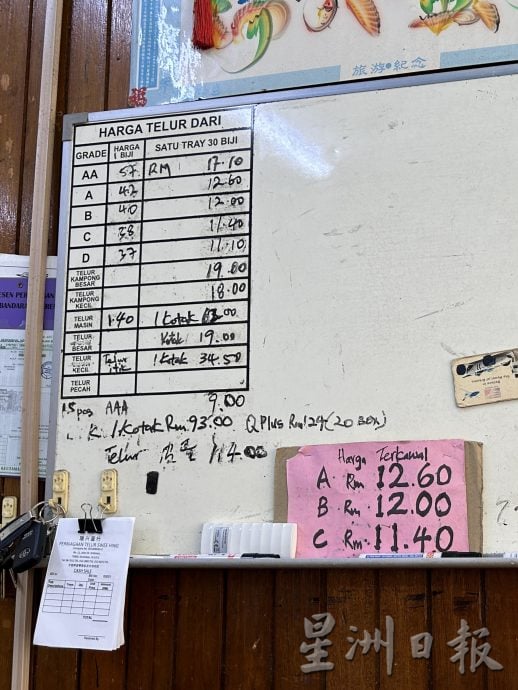 旅游●纪念
HARGA TELUR DARI
GRADE HARGA 1 BIJI SATU TRAY 30 BIJI
AA 57 RM 17.10
A 42 12.60
B 40 12.00
C 38 11.40
D 37 11.10
TELUR KAMPONG BESAR 19.00
TELUR KAMPONG KECIL 18.00
TELUR MASIN 1.40 1 Kotak
TELUR BESAR Kotak 19.00
TELUR KECIL Telur itik 1 Kotak 34.50
TELUR PECAH
15 pcs AAA 9.00
K 1 Kotak Rm 93.00 Q Plus Rm 124 (20 Box)
Telur 114.00
Harga Terkawal
A Rm 12.60
B Rm 12.00
C Rm 11.40
PERNIAGAAN TELUR
CASH SALE
TOTAL
星洲日报